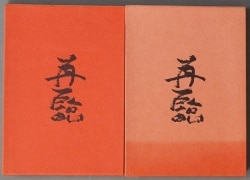 再臨
再臨